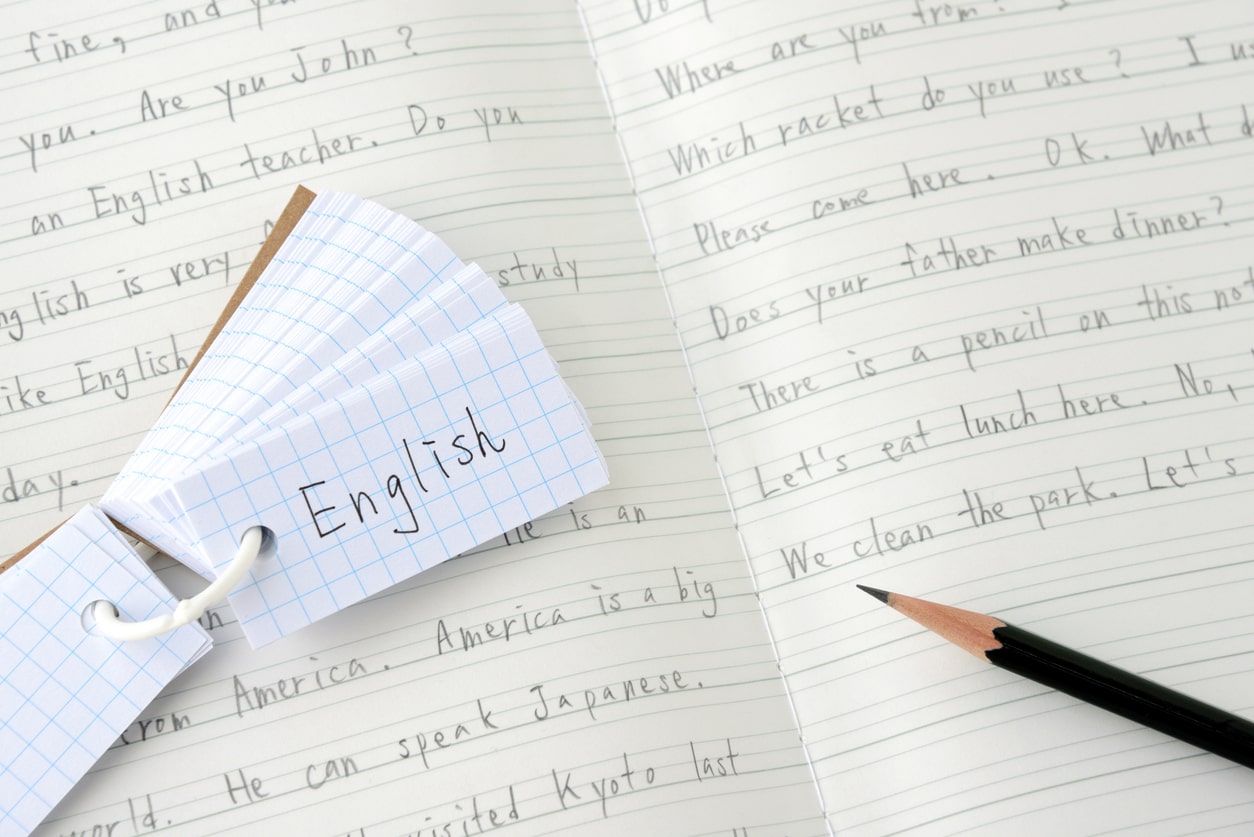 fine, and
you. Are you John?
an English teacher. Do you
English is very
study
like English
day.
He is an
from America. America is a big
world. He can speak Japanese.
visited Kyoto last
English
Where are you from?
Which racket do you use? I
Please come here. Ok. What
Does your father make dinner?
There is a pencil on this
Let's eat lunch here. No,
We clean the park. Let's